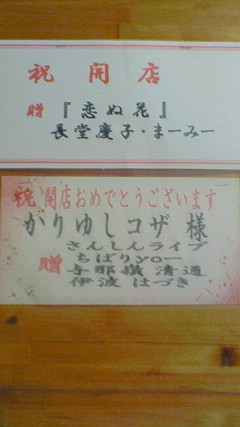 祝 開 店
贈 『恋ぬ花』
長堂慶子・まーみー
祝 開店おめでとうございます
がりゆしコザ 様
さんしんライブ
ちばりyoー
贈 与那嶺 清通
伊波 はづき